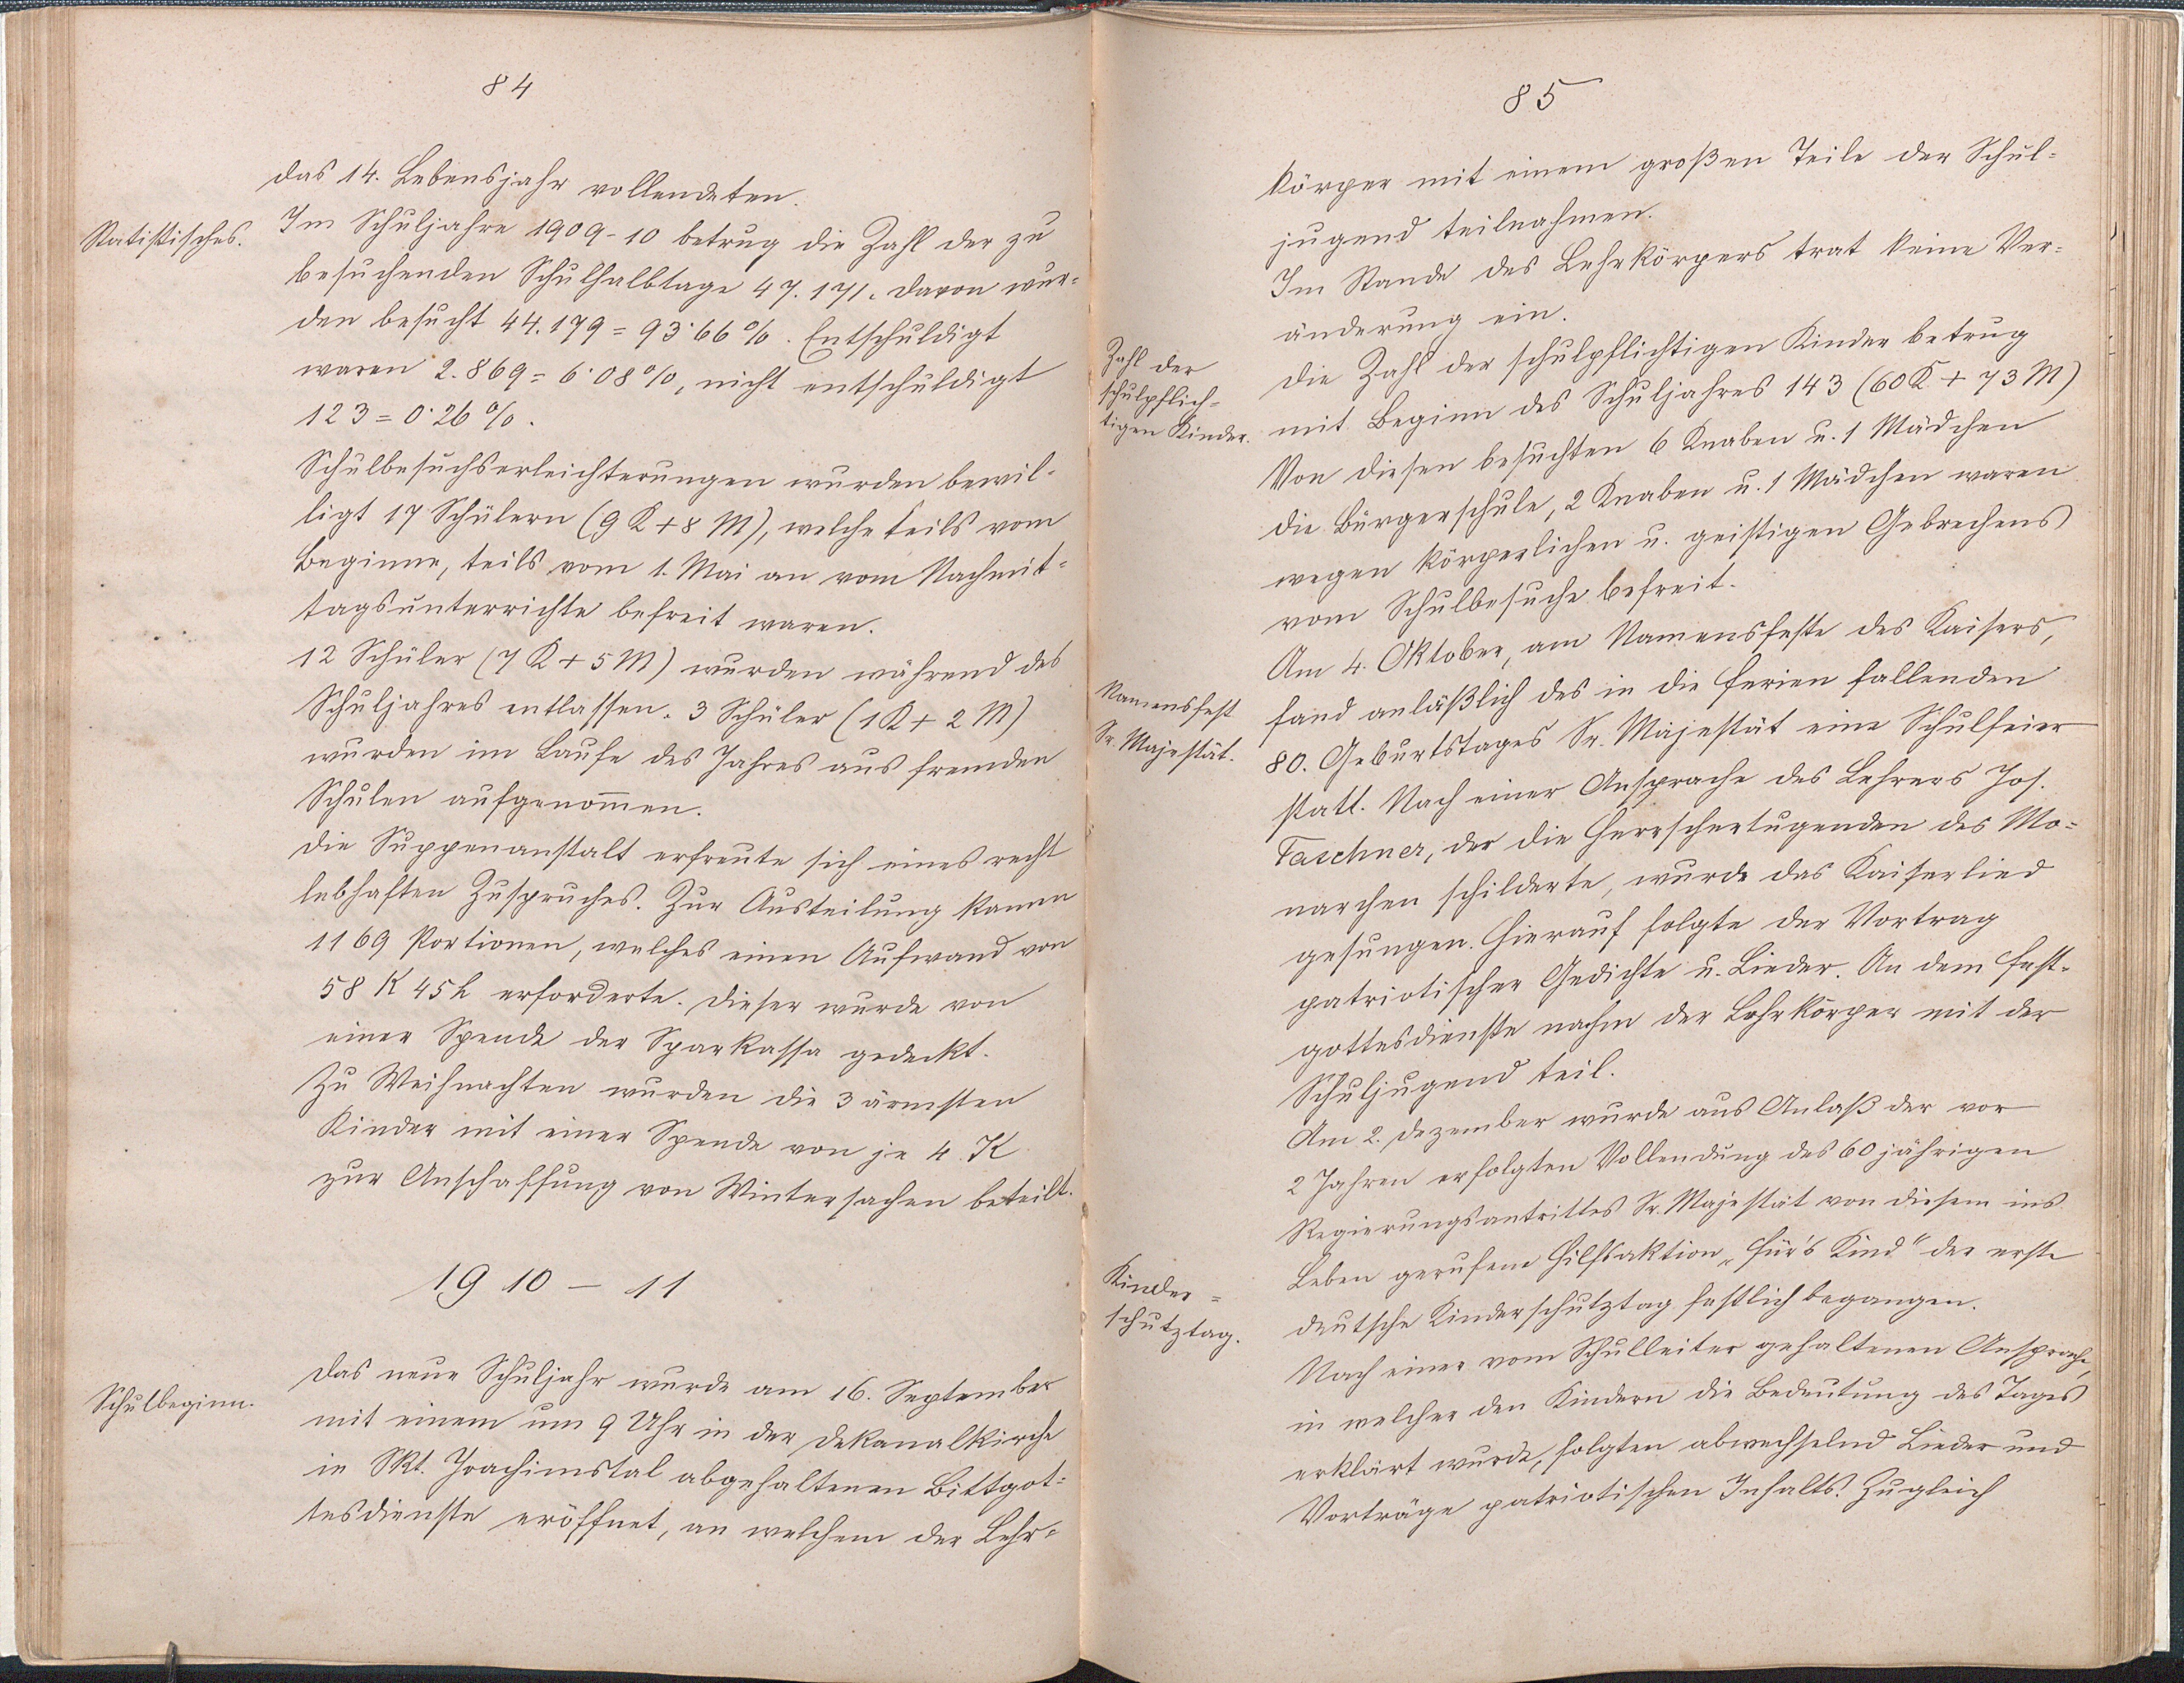 84
das 14. Lebensjahr vollendeten.
Statistisches.
Im Schuljahre 1909-10 betrug die Zahl der zu
besuchenden Schulhalbtage 47.171. Davon wur=
den besucht 44.179 = 93·66%. Entschuldigt
waren 2.869 = 6·08%, nicht entschuldigt
123 = 0·26%.
Schulbesuchserleichterungen wurden bewil=
ligt 17 Schülern (9 K + 8 M), welche teils vom
Beginne, teils vom 1. Mai an vom Nachmit=
tagsunterrichte befreit waren.
12 Schüler (7 K + 5 M) wurden während des
Schuljahres entlassen. 3 Schüler (1 K + 2 M)
wurden im Laufe des Jahres aus fremden
Schulen aufgenom̄en.
Die Suppenanstalt erfreute sich eines recht
lebhaften Zuspruches. Zur Austeilung kamen
1169 Portionen, welches einen Aufwand von
58 K 45 h erforderte. Dieser wurde von
einer Spende der Sparkassa gedeckt.
Zu Weihnachten wurden die 3 ärmsten
Kinder mit einer Spende von je 4 K
zur Anschaffung von Wintersachen beteilt.
1910 – 11
Schulbeginn.
Das neue Schuljahr wurde am 16. September
mit einem um 9 Uhr in der Dekanalkirche
in Skt. Joachimstal abgehaltenen Bittgot=
tesdienste eröffnet, an welchem der Lehr=
85
körper mit einem großen Teile der Schul=
jugend teilnahmen.
Im Stande des Lehrkörpers trat keine Ver=
änderung ein.
Zahl der
schulpflich=
tigen Kinder.
Die Zahl der schulpflichtigen Kinder betrug
mit Beginn des Schuljahres 143 (60 K + 73 M)
Von diesen besuchten 6 Knaben u. 1 Mädchen
die Bürgerschule, 2 Knaben u. 1 Mädchen waren
wegen körperlichen u. geistigen Gebrechens
vom Schulbesuche befreit.
Namensfest
Sr. Majestät.
Am 4. Oktober, am Namensfeste des Kaisers,
fand anläßlich des in die Ferien fallenden
80. Geburtstages Sr. Majestät eine Schulfeier
statt. Nach einer Ansprache des Lehrers Jos.
Taschner, der die Herrschertugenden des Mo=
narchen schilderte, wurde das Kaiserlied
gesungen. Hierauf folgte der Vortrag
patriotischer Gedichte u. Lieder. An dem Fest=
gottesdienste nahm der Lehrkörper mit der
Schuljugend teil.
Am 2. Dezember wurde aus Anlaß der vor
2 Jahren erfolgten Vollendung des 60 jährigen
Regierungsantrittes Sr. Majestät von diesem ins
Kinder=
schutztag.
Leben gerufene Hilfsaktion „Für's Kind“ der erste
deutsche Kinderschutztag festlich begangen.
Nach einer vom Schulleiter gehaltenen Ansprache,
in welcher den Kindern die Bedeutung des Tages
erklärt wurde, folgten abwechselnd Lieder und
Vorträge patriotischen Inhalts. Zugleich